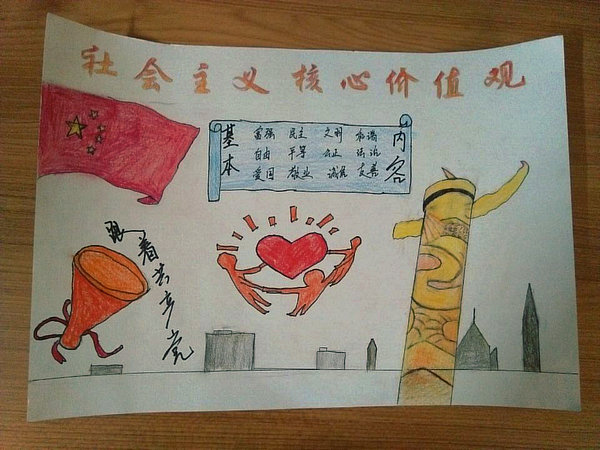 社会主义核心价值观
基本
富强 民主 文明 和谐
自由 平等 公正 法治
爱国 敬业 诚信 友善
内容
跟着共产党